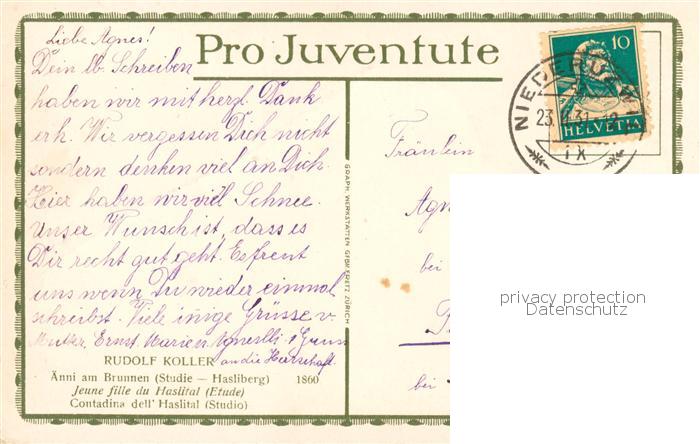 Liebe Agnes!
Pro Juventute
Dein lb. Schreiben
haben wir mit herzl. Dank
erh. Wir vergessen Dich nicht
sondern denken viel an Dich.
Hier haben wir viel Schnee.
Unser Wunsch ist, dass es
Dir recht gut geht. Es freut
uns wenn Du wieder einmal
schreibst. Viele innige Grüsse v.
Mutter, Ernst, Marie u.
an die Herschaft.
RUDOLF KOLLER
Änni am Brunnen (Studie – Hasliberg) 1860
Jeune fille du Haslital (Etude)
Contadina dell' Haslital (Studio)
GRAPH. WERKSTÄTTEN GEBR. FRETZ ZÜRICH
10
HELVETIA
NIEDER
23.
31.
IX
Fräulein
Agn
bei
bei
privacy protection
Datenschutz